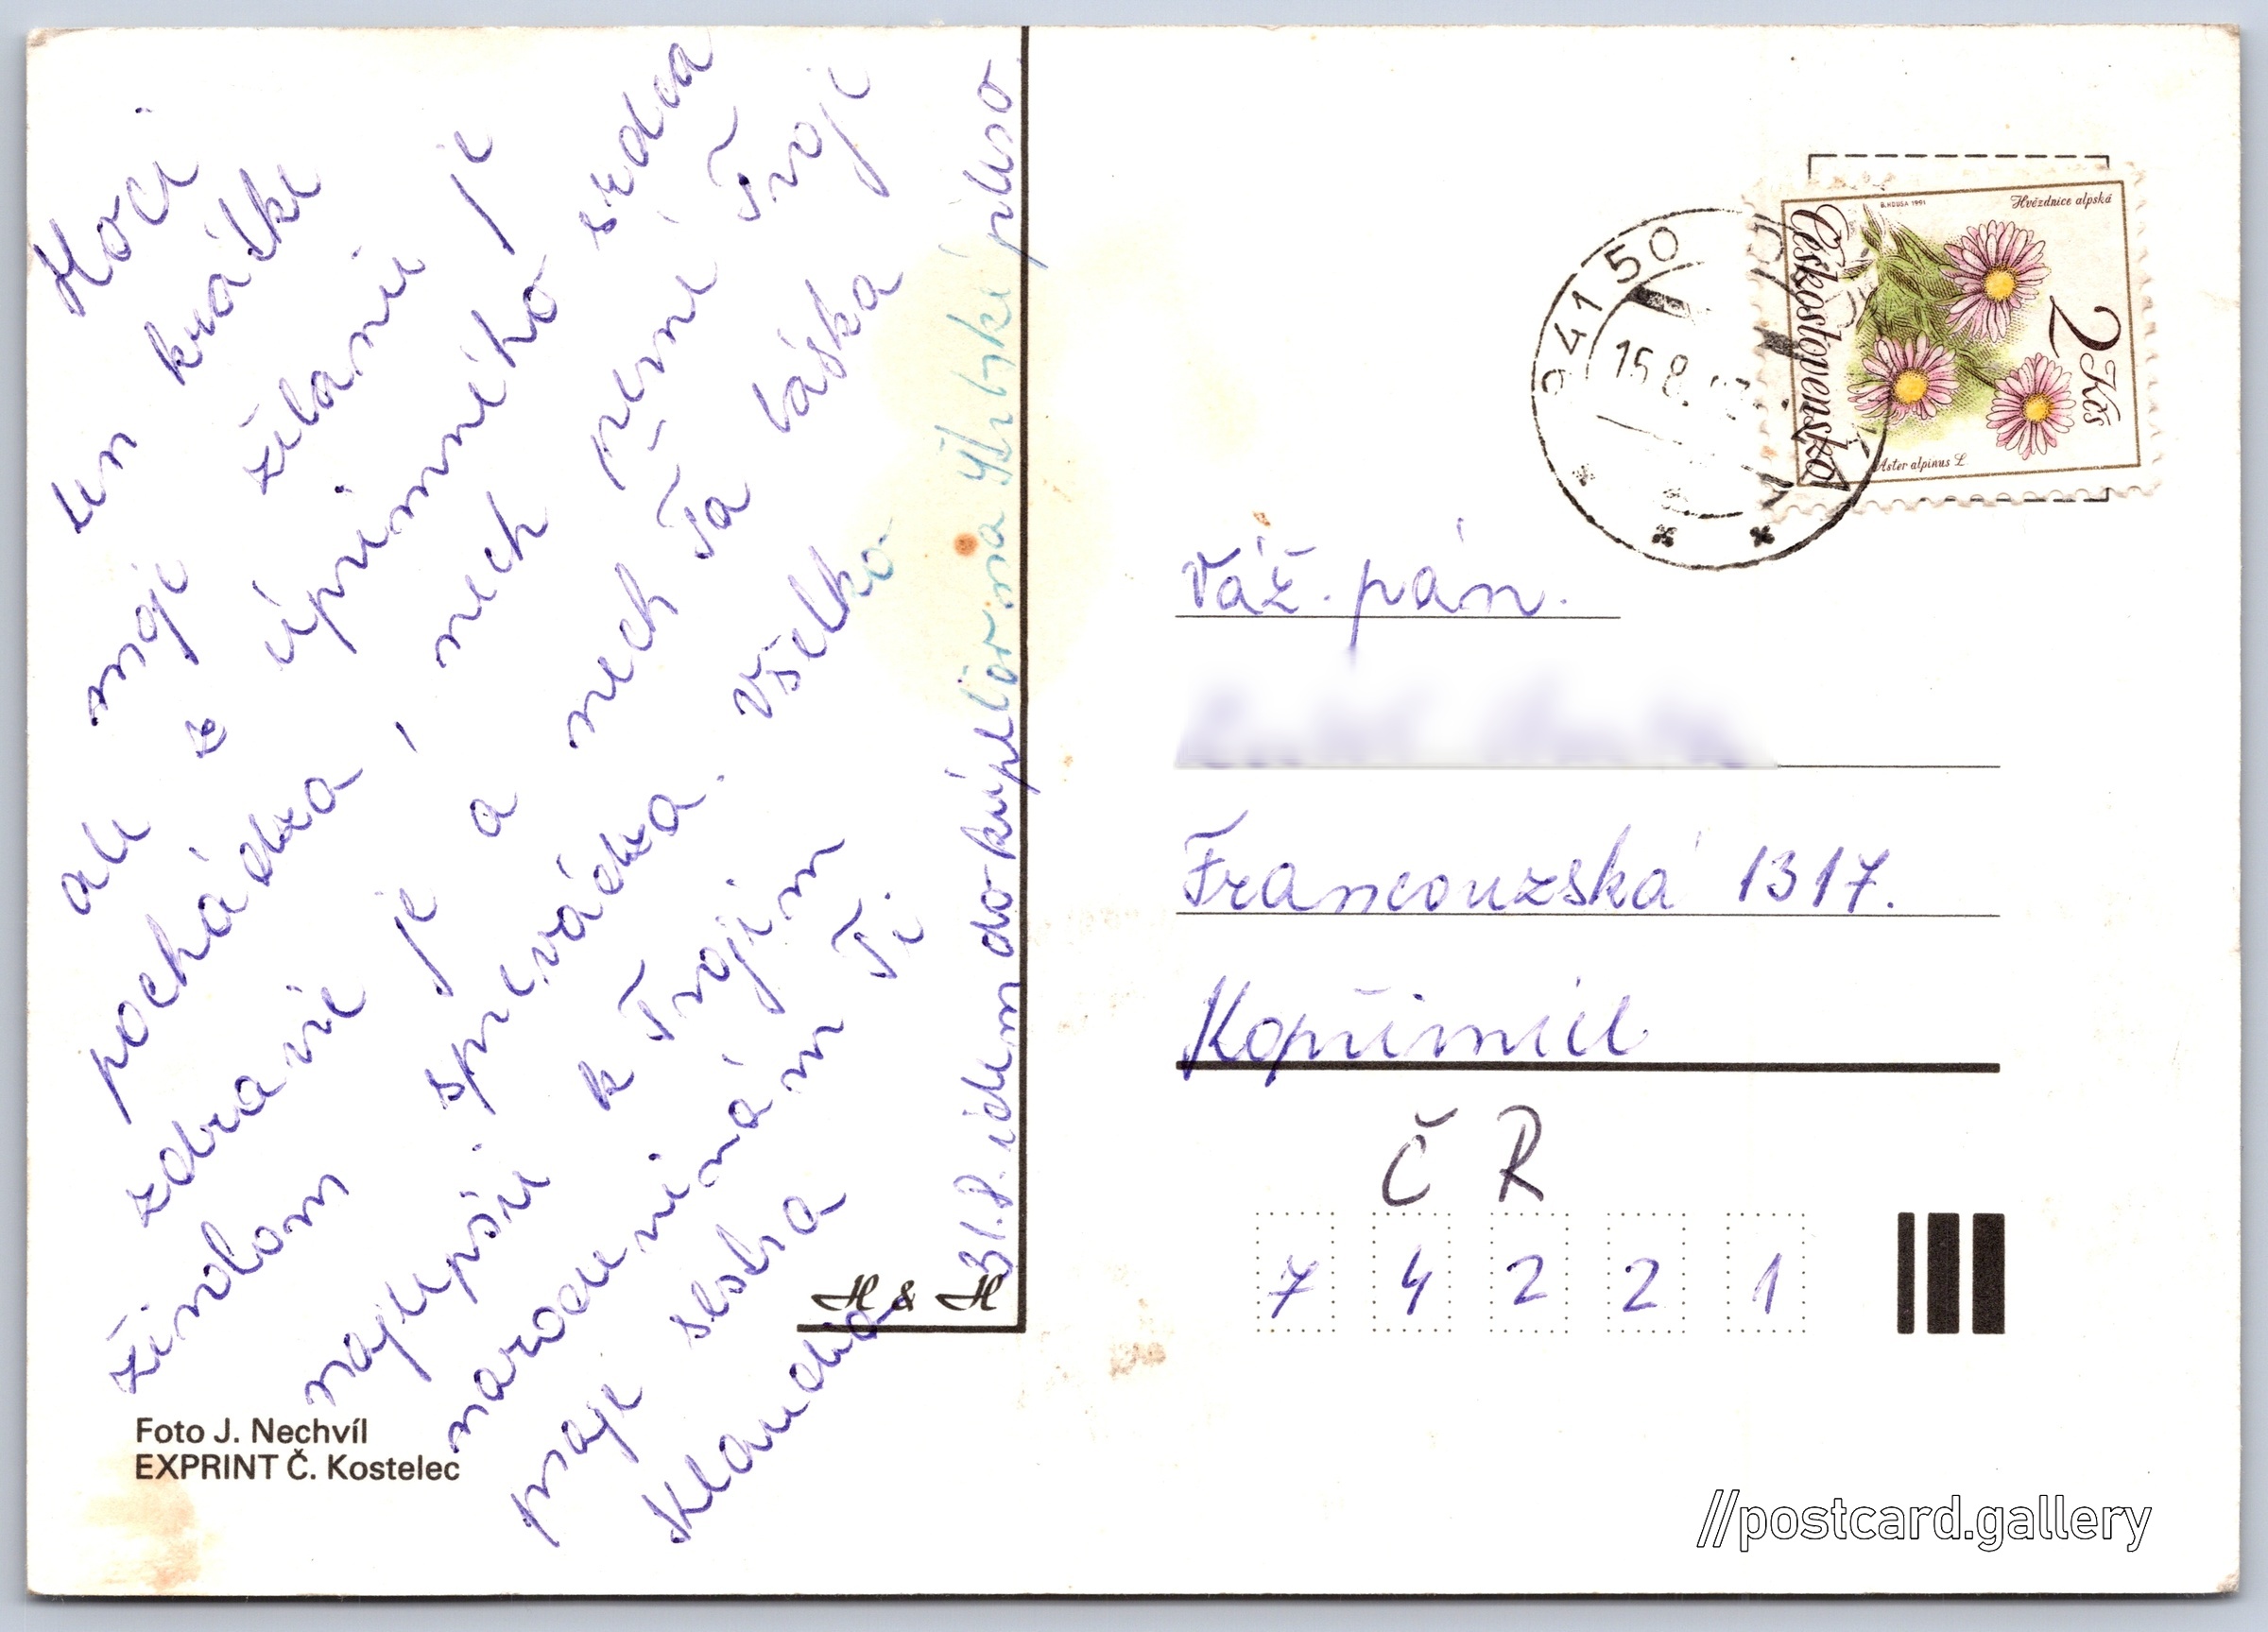 Hoci
len krátke
moje želanie je
ale z úprimného srdca
pochádza, nech pevné Tvoje
zdravie je a nech Ťa láska
životom sprevádza. Všetko
najlepšie k Tvojim
narodeninám Ti
praje sestra
Klaudia
31.8. idem do kúpeľov na Štrbské pleso
H & H
Foto J. Nechvíl
EXPRINT Č. Kostelec
941 50
15.8.
Československo
2 Kčs
Hvězdnice alpská
B. HOUSA 1991
Aster alpinus L
Váž. pán.
Francouzská 1317.
Kopřivnice
ČR
7 4 2 2 1
//postcard.gallery